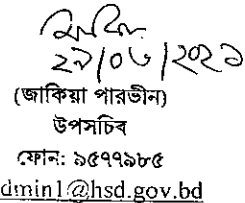 ২৯/০৬/২০২১
(জাকিয়া পারভীন)
উপসচিব
ফোন: ৯৫৭৭৯৮৫
dmin1@hsd.gov.bd